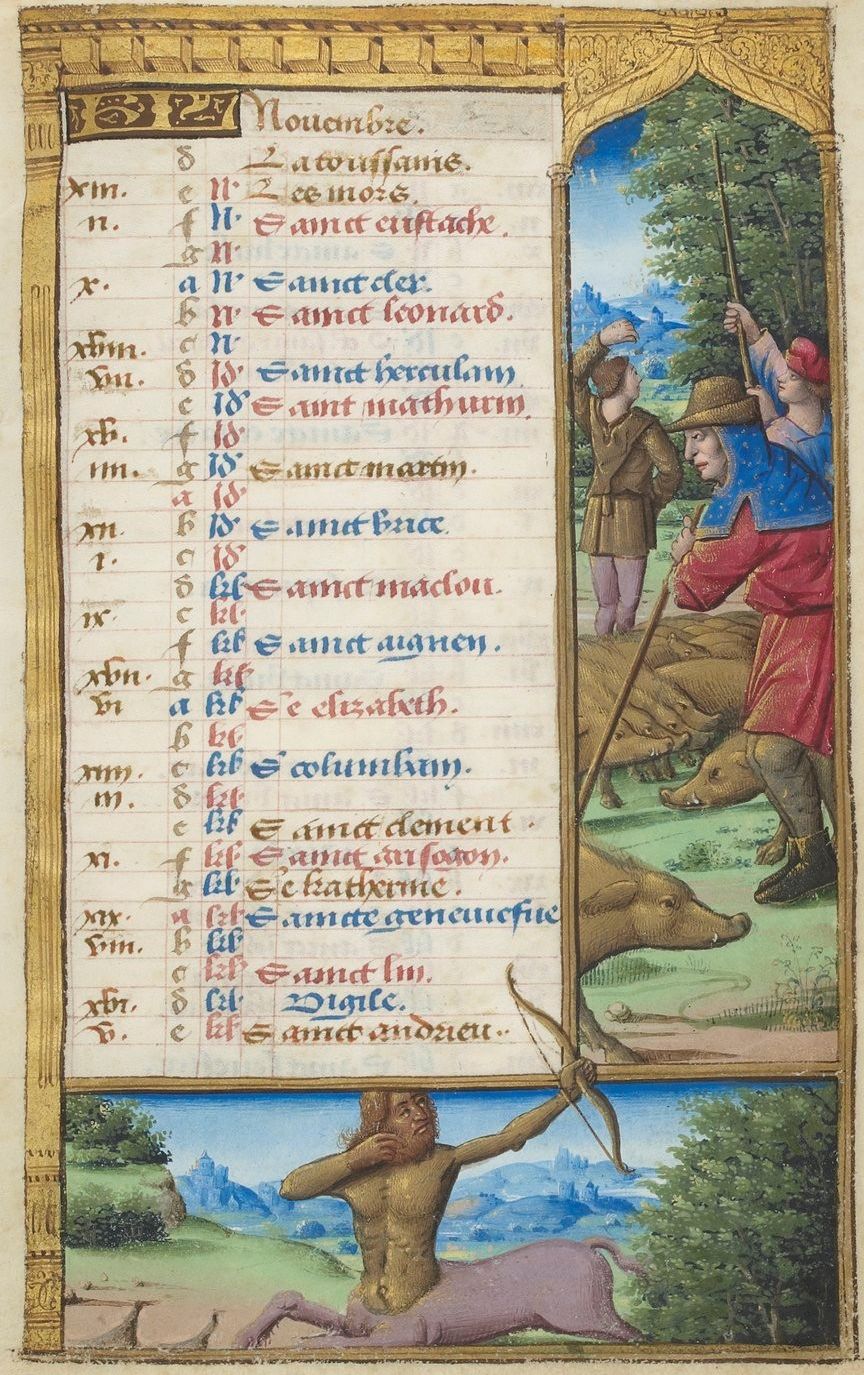 Nouembre.
d La toussains.
xiii. e N· Les mors.
ii. f N· Sainct eustache.
g N·
x. a N· Sainct cler.
b N· Sainct leonard.
xviii. c N·
vii. d Id· Sainct herculain
e Id· Saint mathurin.
xv. f Id·
iiii. g Id· Sainct martin.
a Id·
xii. b Id· Sainct brice.
i. c Id·
d kl· Sainct maclou.
ix. e kl·
f kl· Sainct aignen.
xvii. g kl·
vi a kl· Se elizabeth.
b kl·
xiiii. c kl· S columbain.
iii. d kl·
e kl· Sainct clement
xi. f kl· Sainct grisogon.
g kl· Se katherine.
xix. a kl· Saincte geneuiefue
viii. b kl·
c kl· Sainct lin.
xvi. d kl· Vigile.
v. e kl· Sainct andrieu.